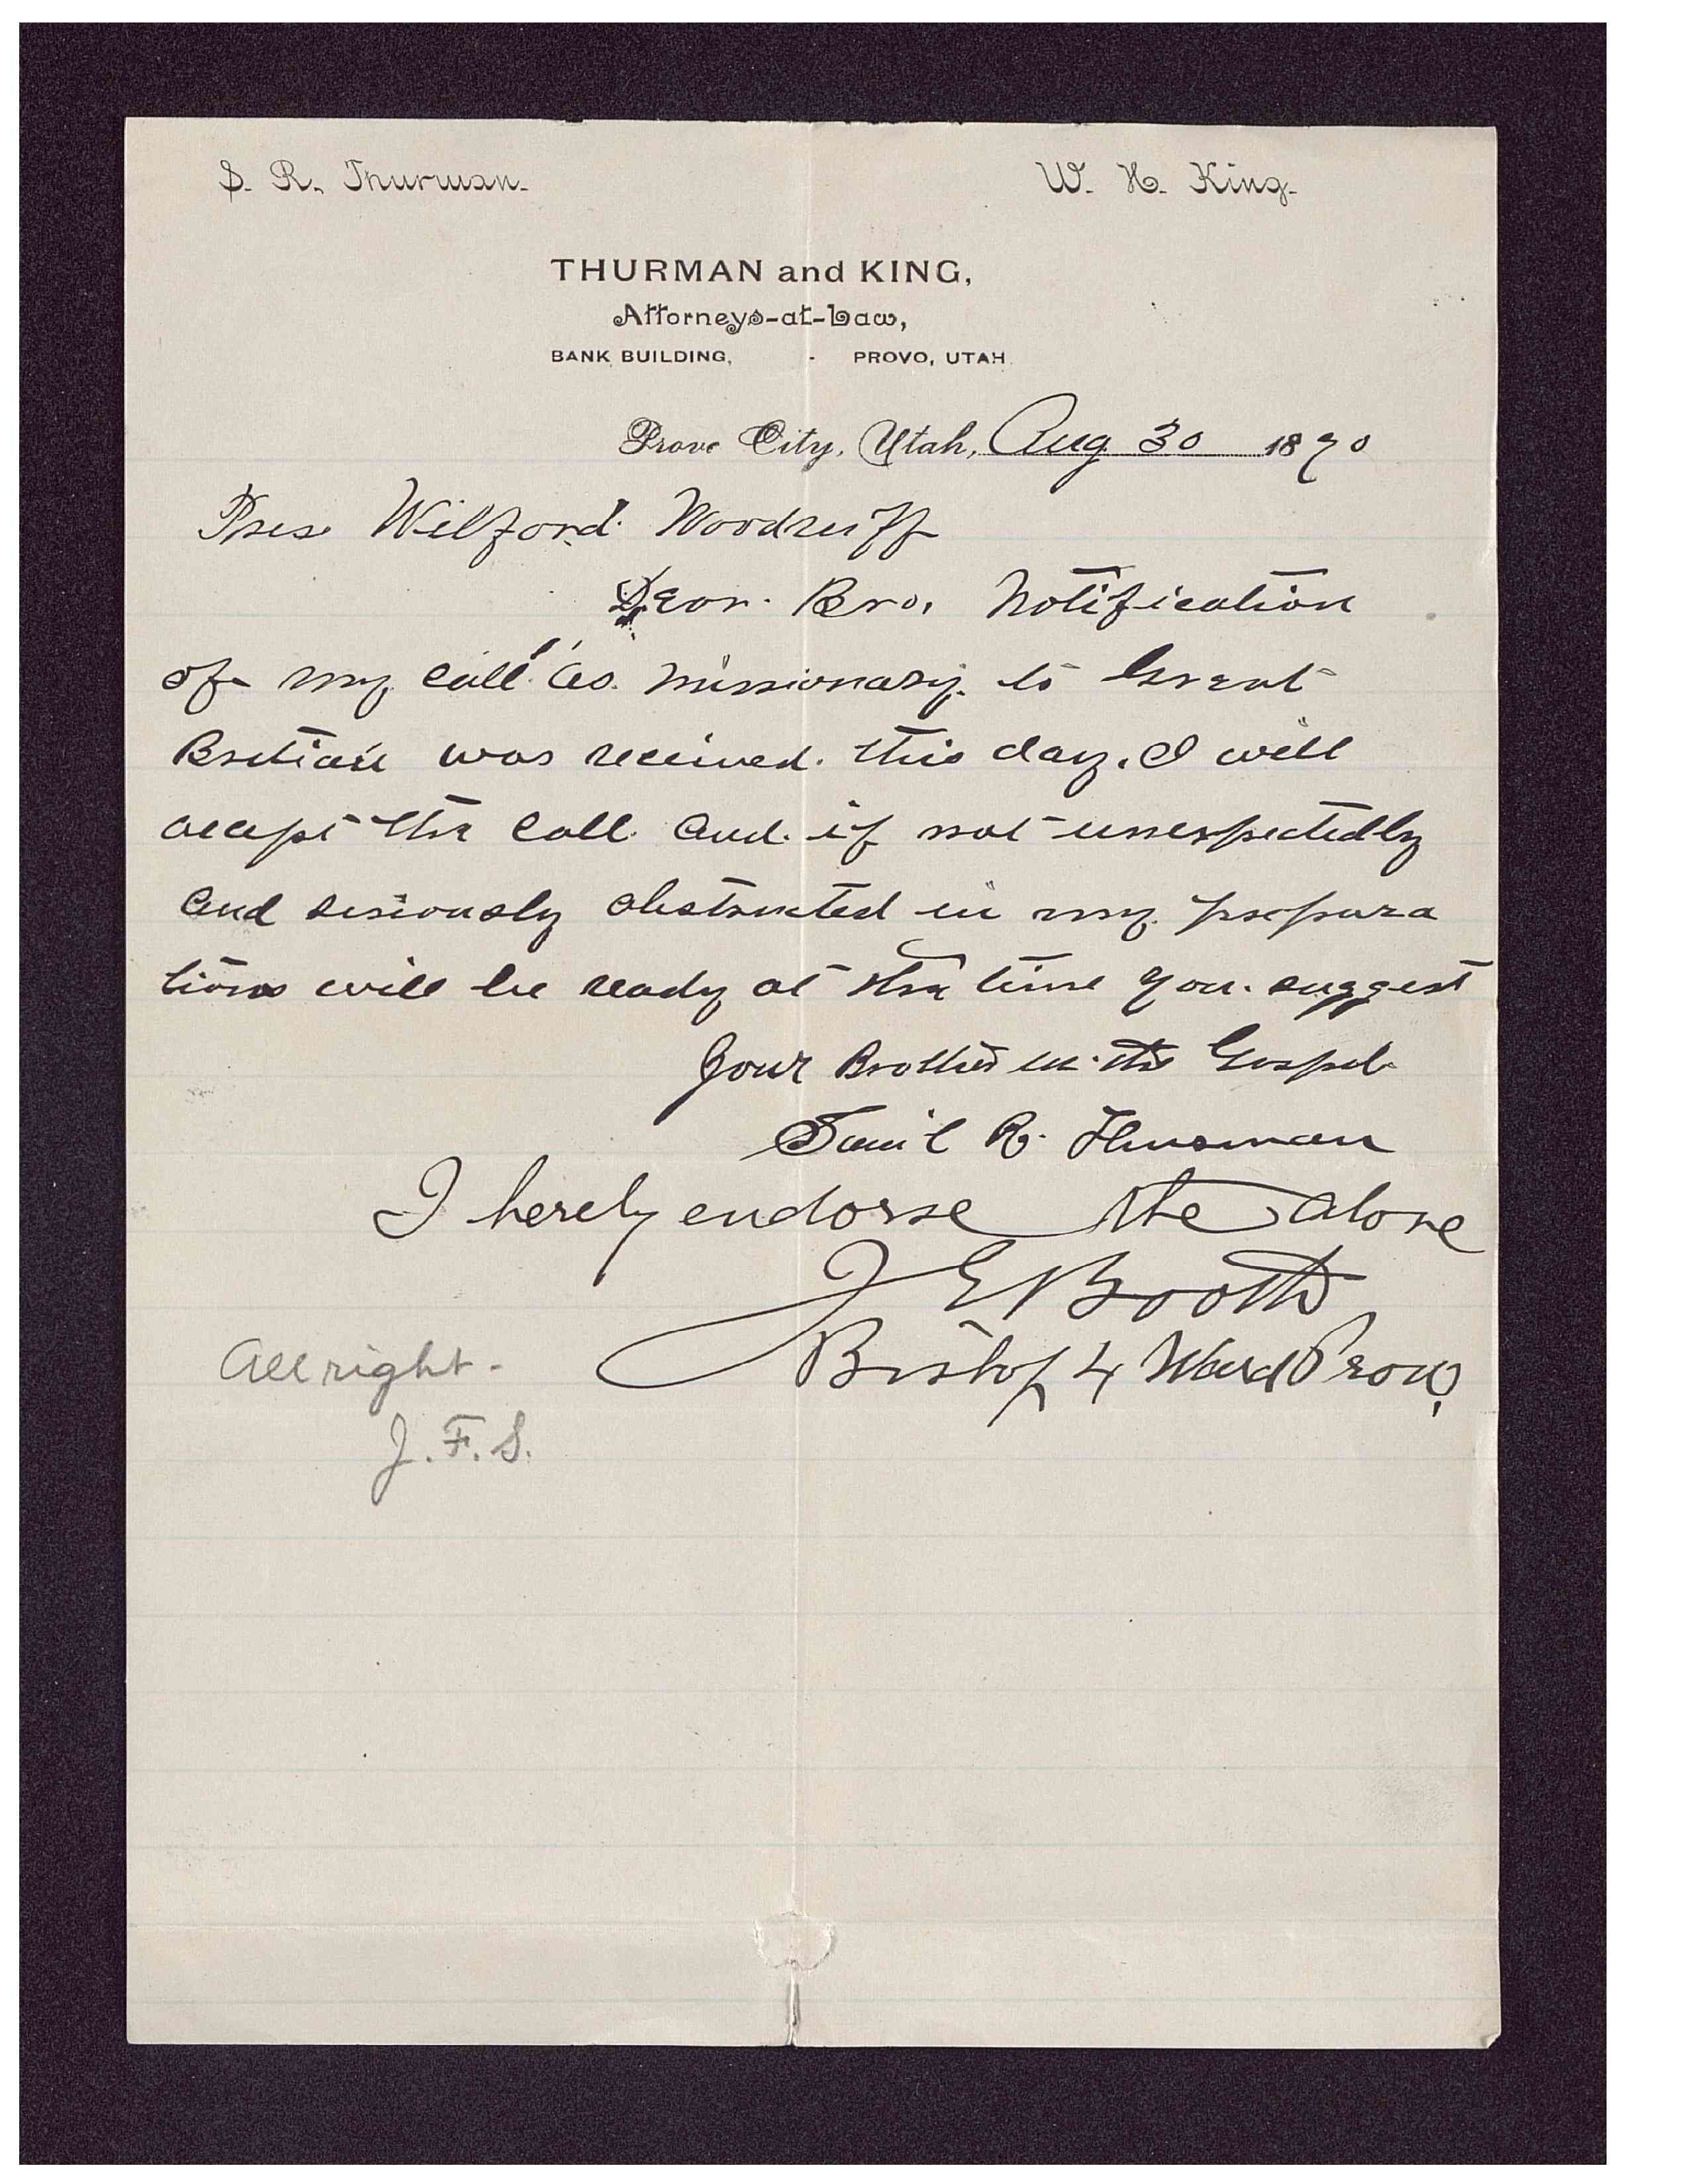 S. R. Thurman. W. H. King.
THURMAN and KING,
Attorneys-at-Law,
BANK BUILDING, - PROVO, UTAH.
Provo City, Utah, Aug 30 1890
Pres Wilford Woodruff
Dear Bro. Notification
of my call as missionary to Great
Britian was received this day. I will
accept the call and if not unexpectedly
and seriously obstructed in my prepara
tions will be ready at the time you suggest
Your Brother in the Gospel
Sam'l R. Thurman
I hereby endorse the above
J E Booth
Bishop 4 Ward Provo,
All right -
J. F. S.